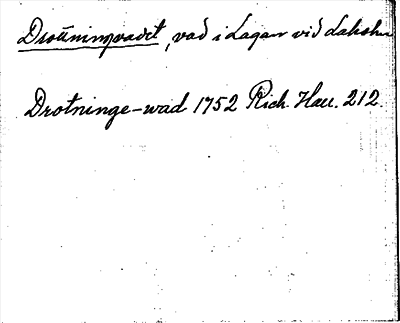 Drottningvadet, vad i Lagan vid Laholm
Drotninge-wad 1752 Rich. Hall. 212.